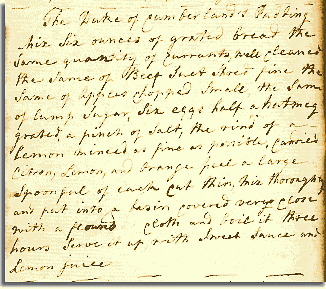 The Duke of Cumberland's Pudding
Mix Six ounces of grated bread the
Same quantity of Currants, well cleaned
the Same of Beef Suet Shred fine the
Same of Apples Chopped Small the Same
of lump Sugar, Six eggs half a nutmeg
grated, a pinch of Salt, the rind of
Lemon minced as fine as possible, Candied
Citron, Lemon, and Orange peel a large
Spoonful of each Cut thin, Mix thoroughly
and put into a basin covered very close
with a floured cloth and boil it three
hours Serve it up with Sweet Sauce and
Lemon juice